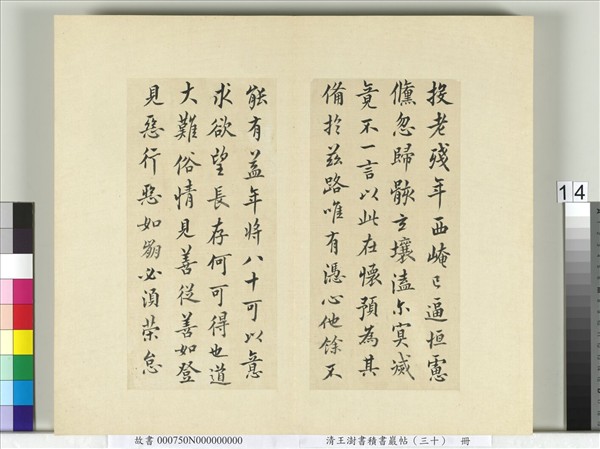 投老殘年西崦已逼恒慮
儻忽歸骸玄壤溘尔冥滅
竟不一言以此在懷預為其
備於茲路唯有憑心他餘不
能有益年將八十可以意
求欲望長存何可得也道
大難俗情見善從善如登
見惡行惡如崩必須榮怠
14
故書 000750N000000000
清王澍書積書巖帖(三十) 冊